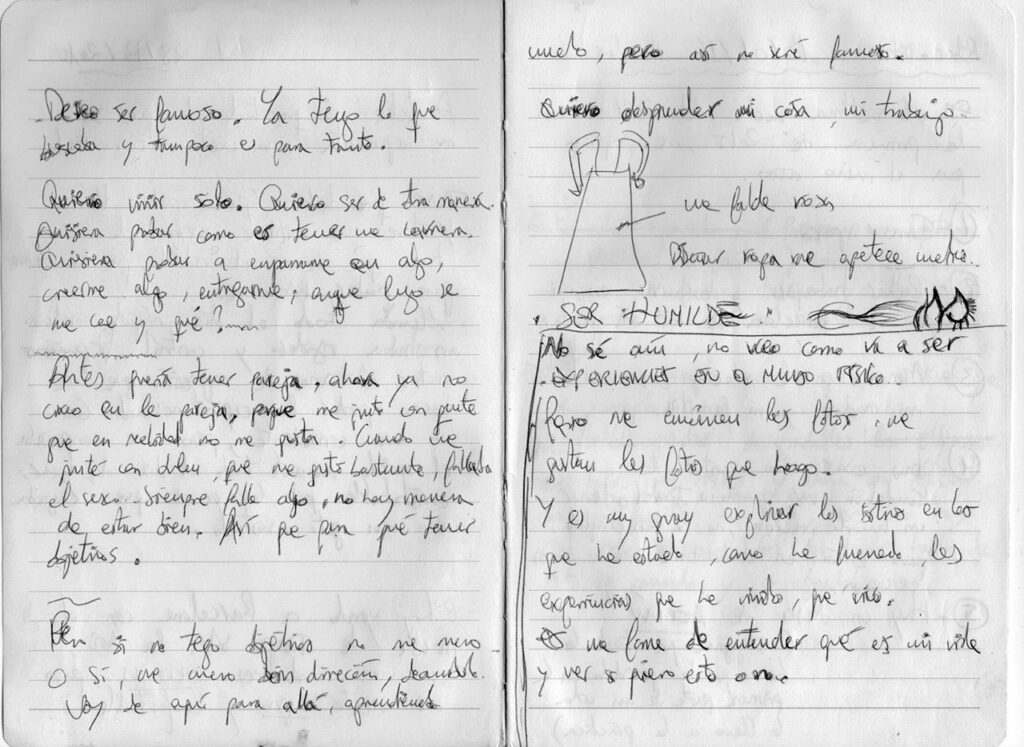 Deseo ser famoso. Ya tengo lo que
buscaba y tampoco es para tanto.
Quiero vivir solo. Quiero ser de otra manera.
Quisiera probar como es tener una carrera.
Quisiera probar a empararme en algo,
creerme algo, entregarme, aunque luego se
me cae y qué?....
Antes, quería tener pareja, ahora ya no
creo en la pareja, porque me junto con gente
que en realidad no me gusta. Cuando me
junté con, que me gustó bastante, fallaba
el sexo. Siempre falla algo, no hay manera
de estar bien. Así que para qué tener
objetivos.
Pero si no tengo objetivos no me muevo
O Sí, me muevo sin dirección, deambulo.
Voy de aquí para allá, aprendiendo
, pero así no seré famoso.
Quiero desprender mi cosa, mi trabajo
una falda rosa
ropa me apetece
. SER HUMILDE.
No sé aún, no veo como va a ser
EXPERIENCIES EN EL MUNDO FÍSICO.
Pero me las fotos. me
gustan las fotos que hago.
Y es muy guay explicar los sitios en los
que he estado, como he, las
experiencias que he vivido, que vivo.
Es una forma de entender qué es mi vida
y ver si quiero esto o no.